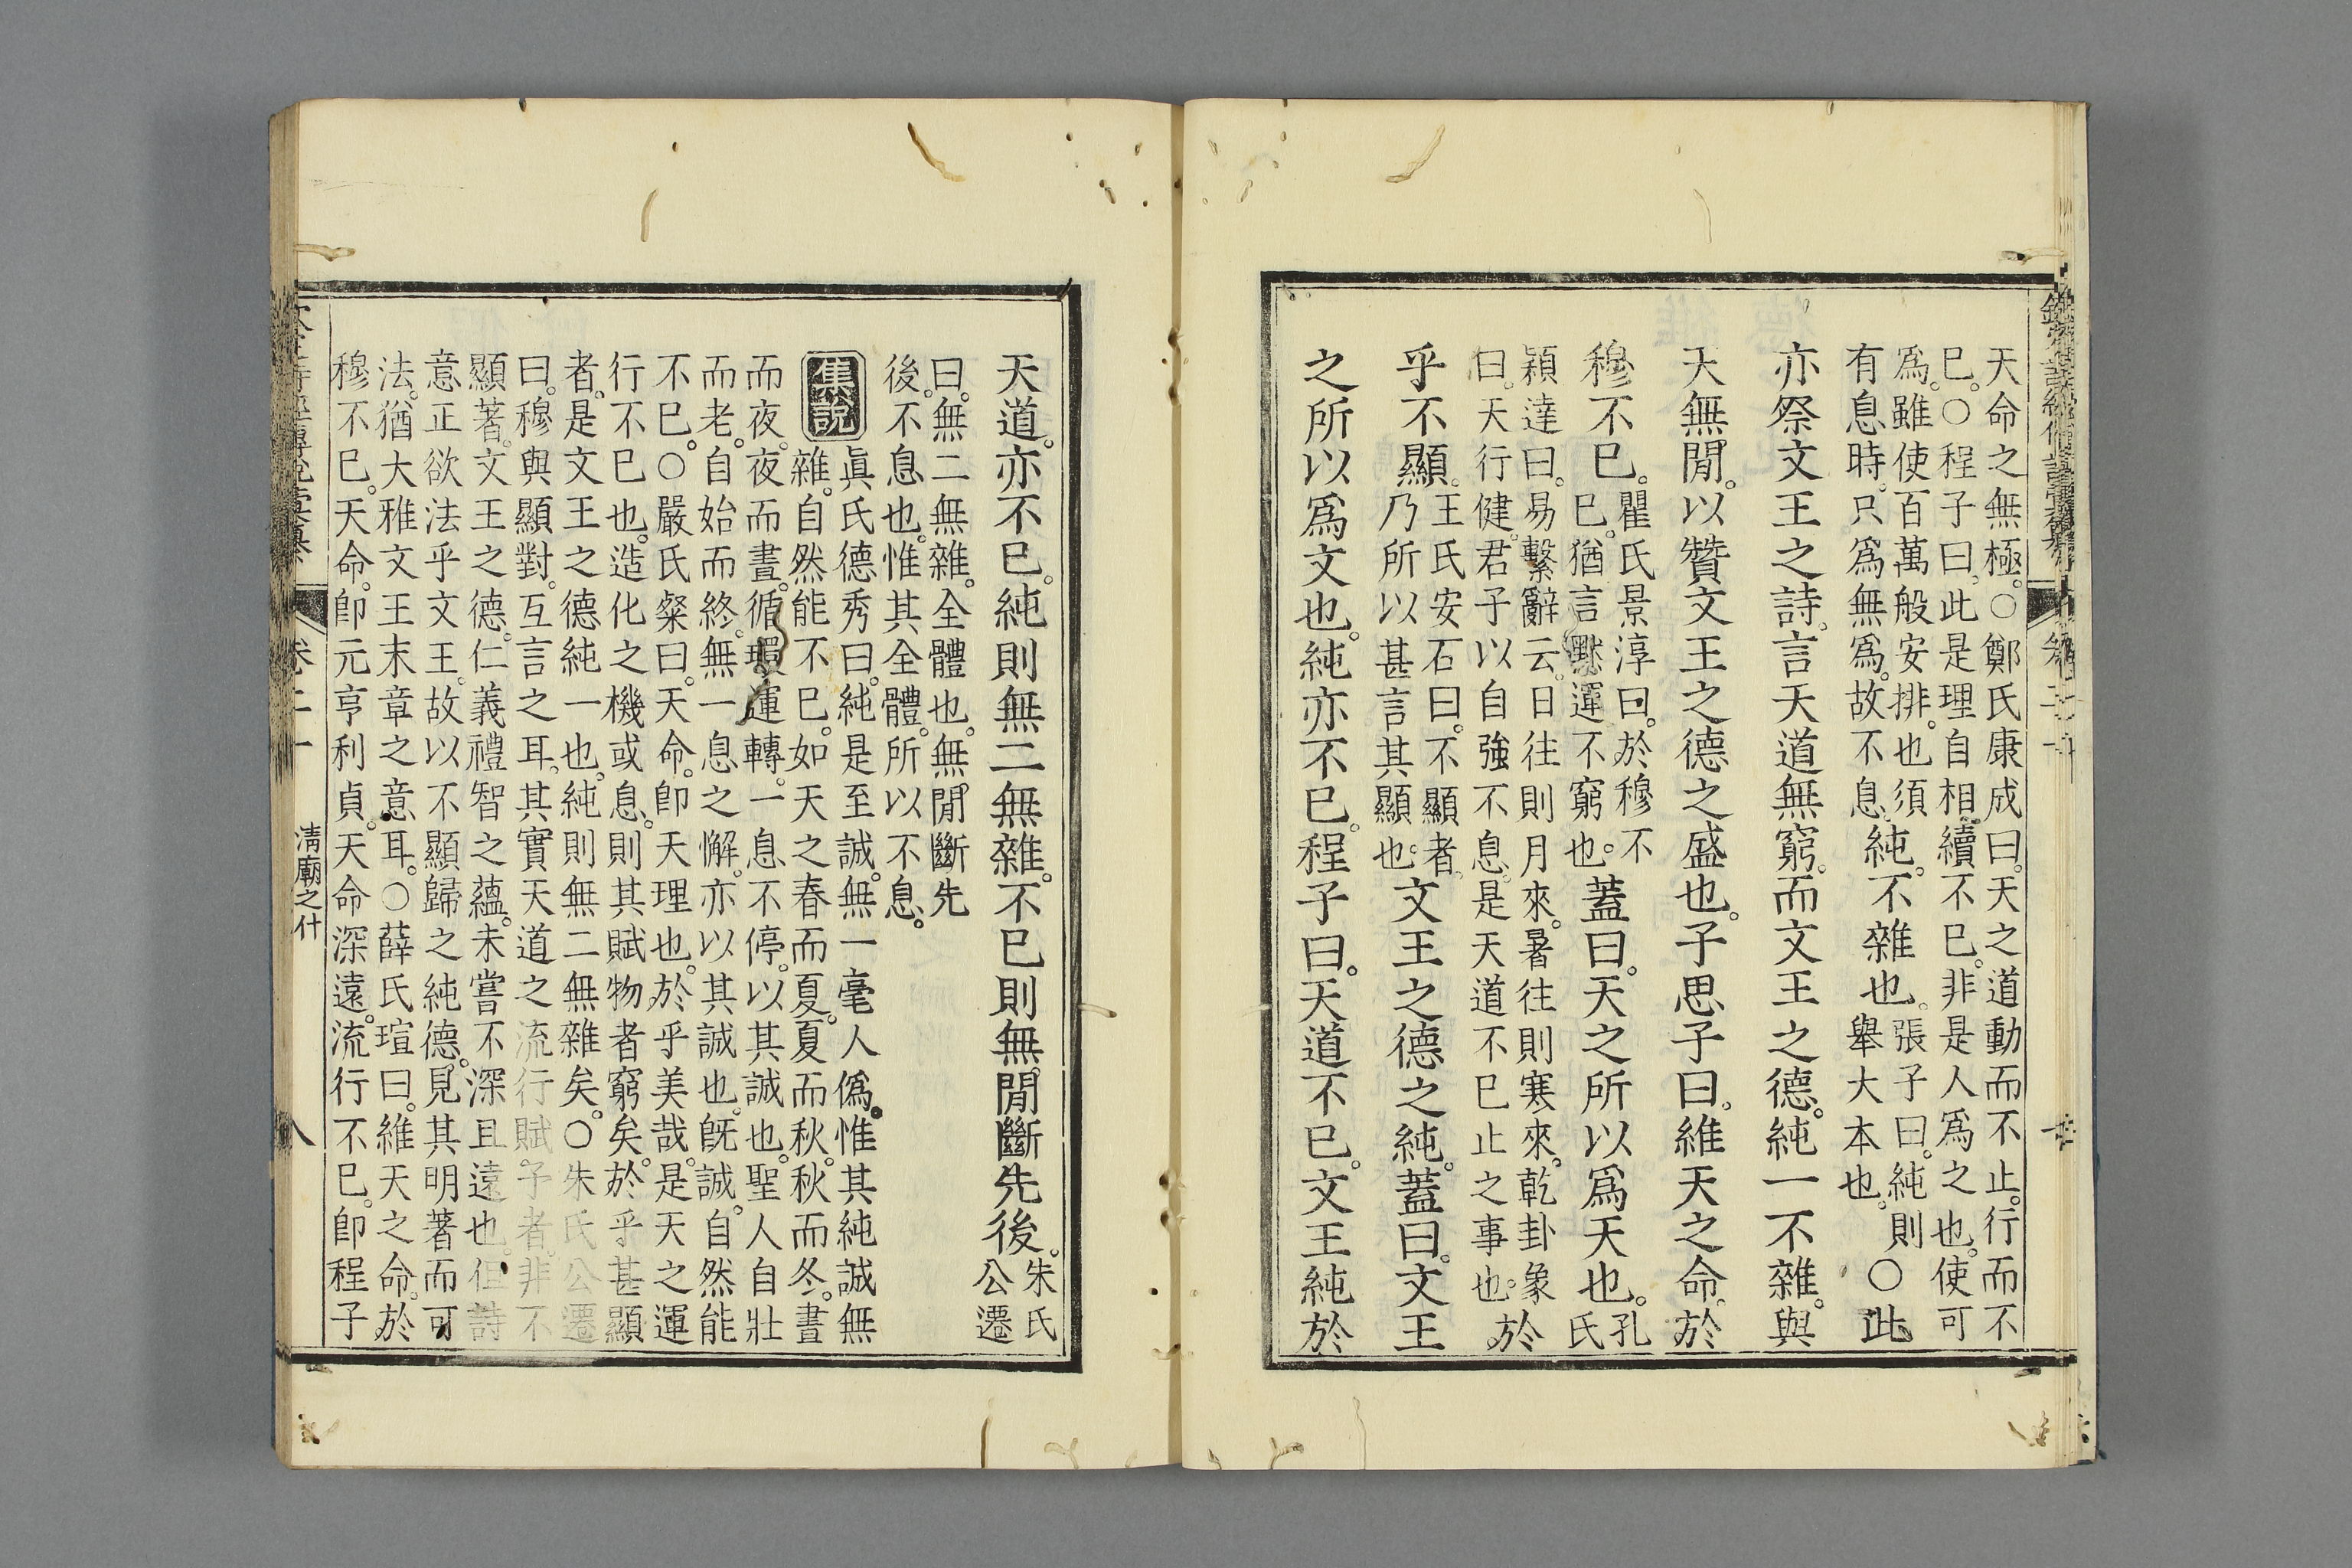 天命之無極。○鄭氏康成曰。天之道動而不止。行而不
已。○程子曰。此是理自相續不已。非是人爲之也。使可
爲。雖使百萬般安排。也須
有息時。只爲無爲。故不息。
純。不雜也。
張子曰。純則
舉大本也。
○此
亦祭文王之詩。言天道無窮。而文王之德。純一不雜。與
天無閒。以贊文王之德之盛也。子思子曰。維天之命。於
穆不已。
瞿氏景淳曰。於穆不
已。猶言默運不窮也。
蓋曰。天之所以爲天也。
孔
氏
穎達曰。易繫辭云。日往則月來。暑往則寒來。乾卦象
曰。天行健。君子以自強不息。是天道不已止之事也。
於
乎不顯。
王氏安石曰。不顯者。
乃所以甚言其顯也。
文王之德之純。蓋曰。文王
之所以爲文也。純亦不已。程子曰。天道不已。文王純於
天道。亦不已。純則無二無雜。不已則無閒斷先後。
朱氏
公遷
曰。無二無雜。全體也。無閒斷先
後。不息也。惟其全體。所以不息。
集說
眞氏德秀曰。純是至誠。無一毫人僞。惟其純誠無
雜。自然能不已。如天之春而夏。夏而秋。秋而冬。晝
而夜。夜而晝。循環運轉。一息不停。以其誠也。聖人自壯
而老。自始而終。無一息之懈。亦以其誠也。旣誠。自然能
不已。○嚴氏粲曰。天命。卽天理也。於乎美哉。是天之運
行不已也。造化之機或息。則其賦物者窮矣。於乎甚顯
者。是文王之德純一也。純則無二無雜矣。○朱氏公遷
曰。穆與顯對。互言之耳。其實天道之流行賦予者。非不
顯著。文王之德。仁義禮智之蘊。未嘗不深且遠也。但詩
意正欲法乎文王。故以不顯歸之純德。見其明著而可
法。猶大雅文王末章之意耳。○薛氏瑄曰。維天之命。於
穆不已。天命。卽元亨利貞。天命深遠。流行不已。卽程子
卷二十
清廟之什
八